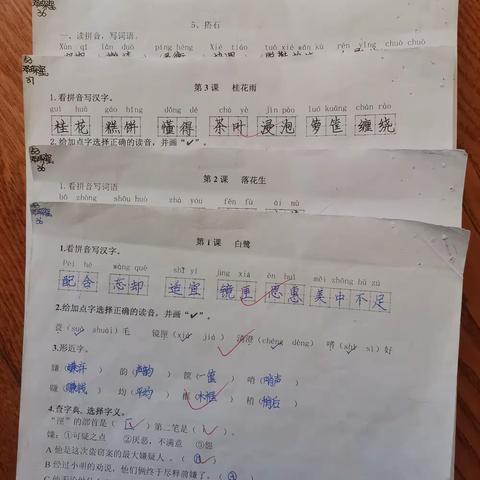 36
5、搭石
一、读拼音,写词语。
37
第 3 课 桂花雨
1.看拼音写汉字。
guì huā gāo bǐng dǒng dé chá yè jìn pào luó kuāng chán rào
桂花 糕饼 懂得 茶叶 浸泡 箩筐 缠绕
2.给加点字选择正确的读音,并画“✓”。
36
第 2 课 落花生
1.看拼音写词语
bō zhǒng shōu huò zhà yóu
36
第 1 课 白鹭
1.看拼音写汉字。
pèi hé wàng què shì yí jìng xiá ēn huì měi zhōng bù zú
配合 忘却 适宜 镜匣 恩惠 美中不足
2.给加点字选择正确的读音,并画“✓”。
蓑(suō shuāi)毛 镜匣(xiá jiá) 清澄(chéng dèng) 嗜(shì sì)好
3.形近字。
嫌(嫌弃) 韵(声韵) 筐(一筐) 哨(哨声)
赚(赚钱) 均(平均) 框(木框) 梢(梢后)
4.查字典、选择字义。
“匣”的部首是( ) 第二笔是( )。
嫌:①可疑之点 ②厌恶,不满意 ③怨
A 他是这次盗窃案的最大嫌疑人。(①)
B 经过小明的劝说,他们俩终于尽释前嫌了。(③)